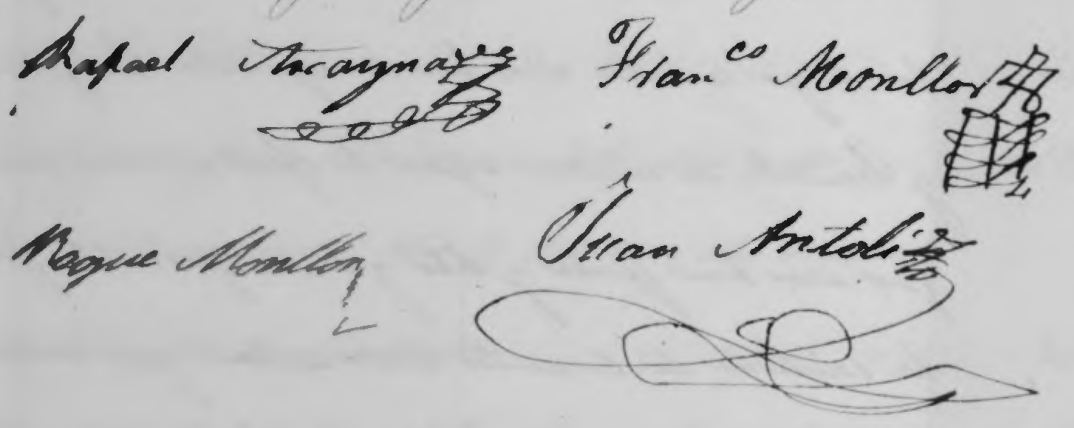 Rafael Aracayna Fran.co Monllor
Roque Monllor Juan Antoli